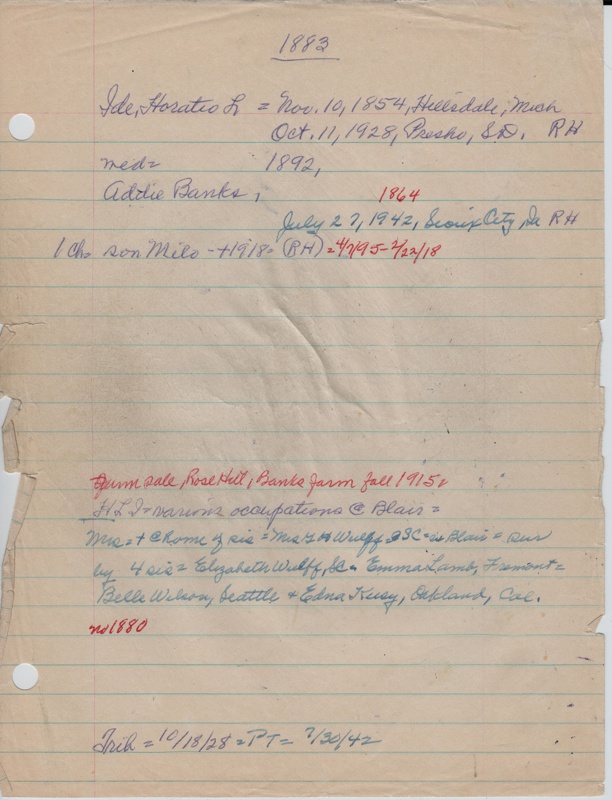 1883
Ide, Horatio L = Nov. 10, 1854, Hillsdale, Mich
Oct. 11, 1928, Presho, S.D. RH
med= 1892,
Addie Banks, 1864
July 27, 1942, Sioux City, Ia RH
1 Ch= son Milo - +1918= (RH) = 4/7/95 - 2/22/18
Farm sale, Rose Hill, Banks farm fall 1915.
HLI = various occupations @ Blair =
Mrs = + @ home of sis = Mrs G H Wulff SC = Blair = sur
by 4 sis = Elizabeth Wulff, SC - Emma Lamb, Fremont =
Belle Wilson, Seattle + Edna Kusy, Oakland, Cal.
no 1880
Trib = 10/18/28 = PT = 7/30/42